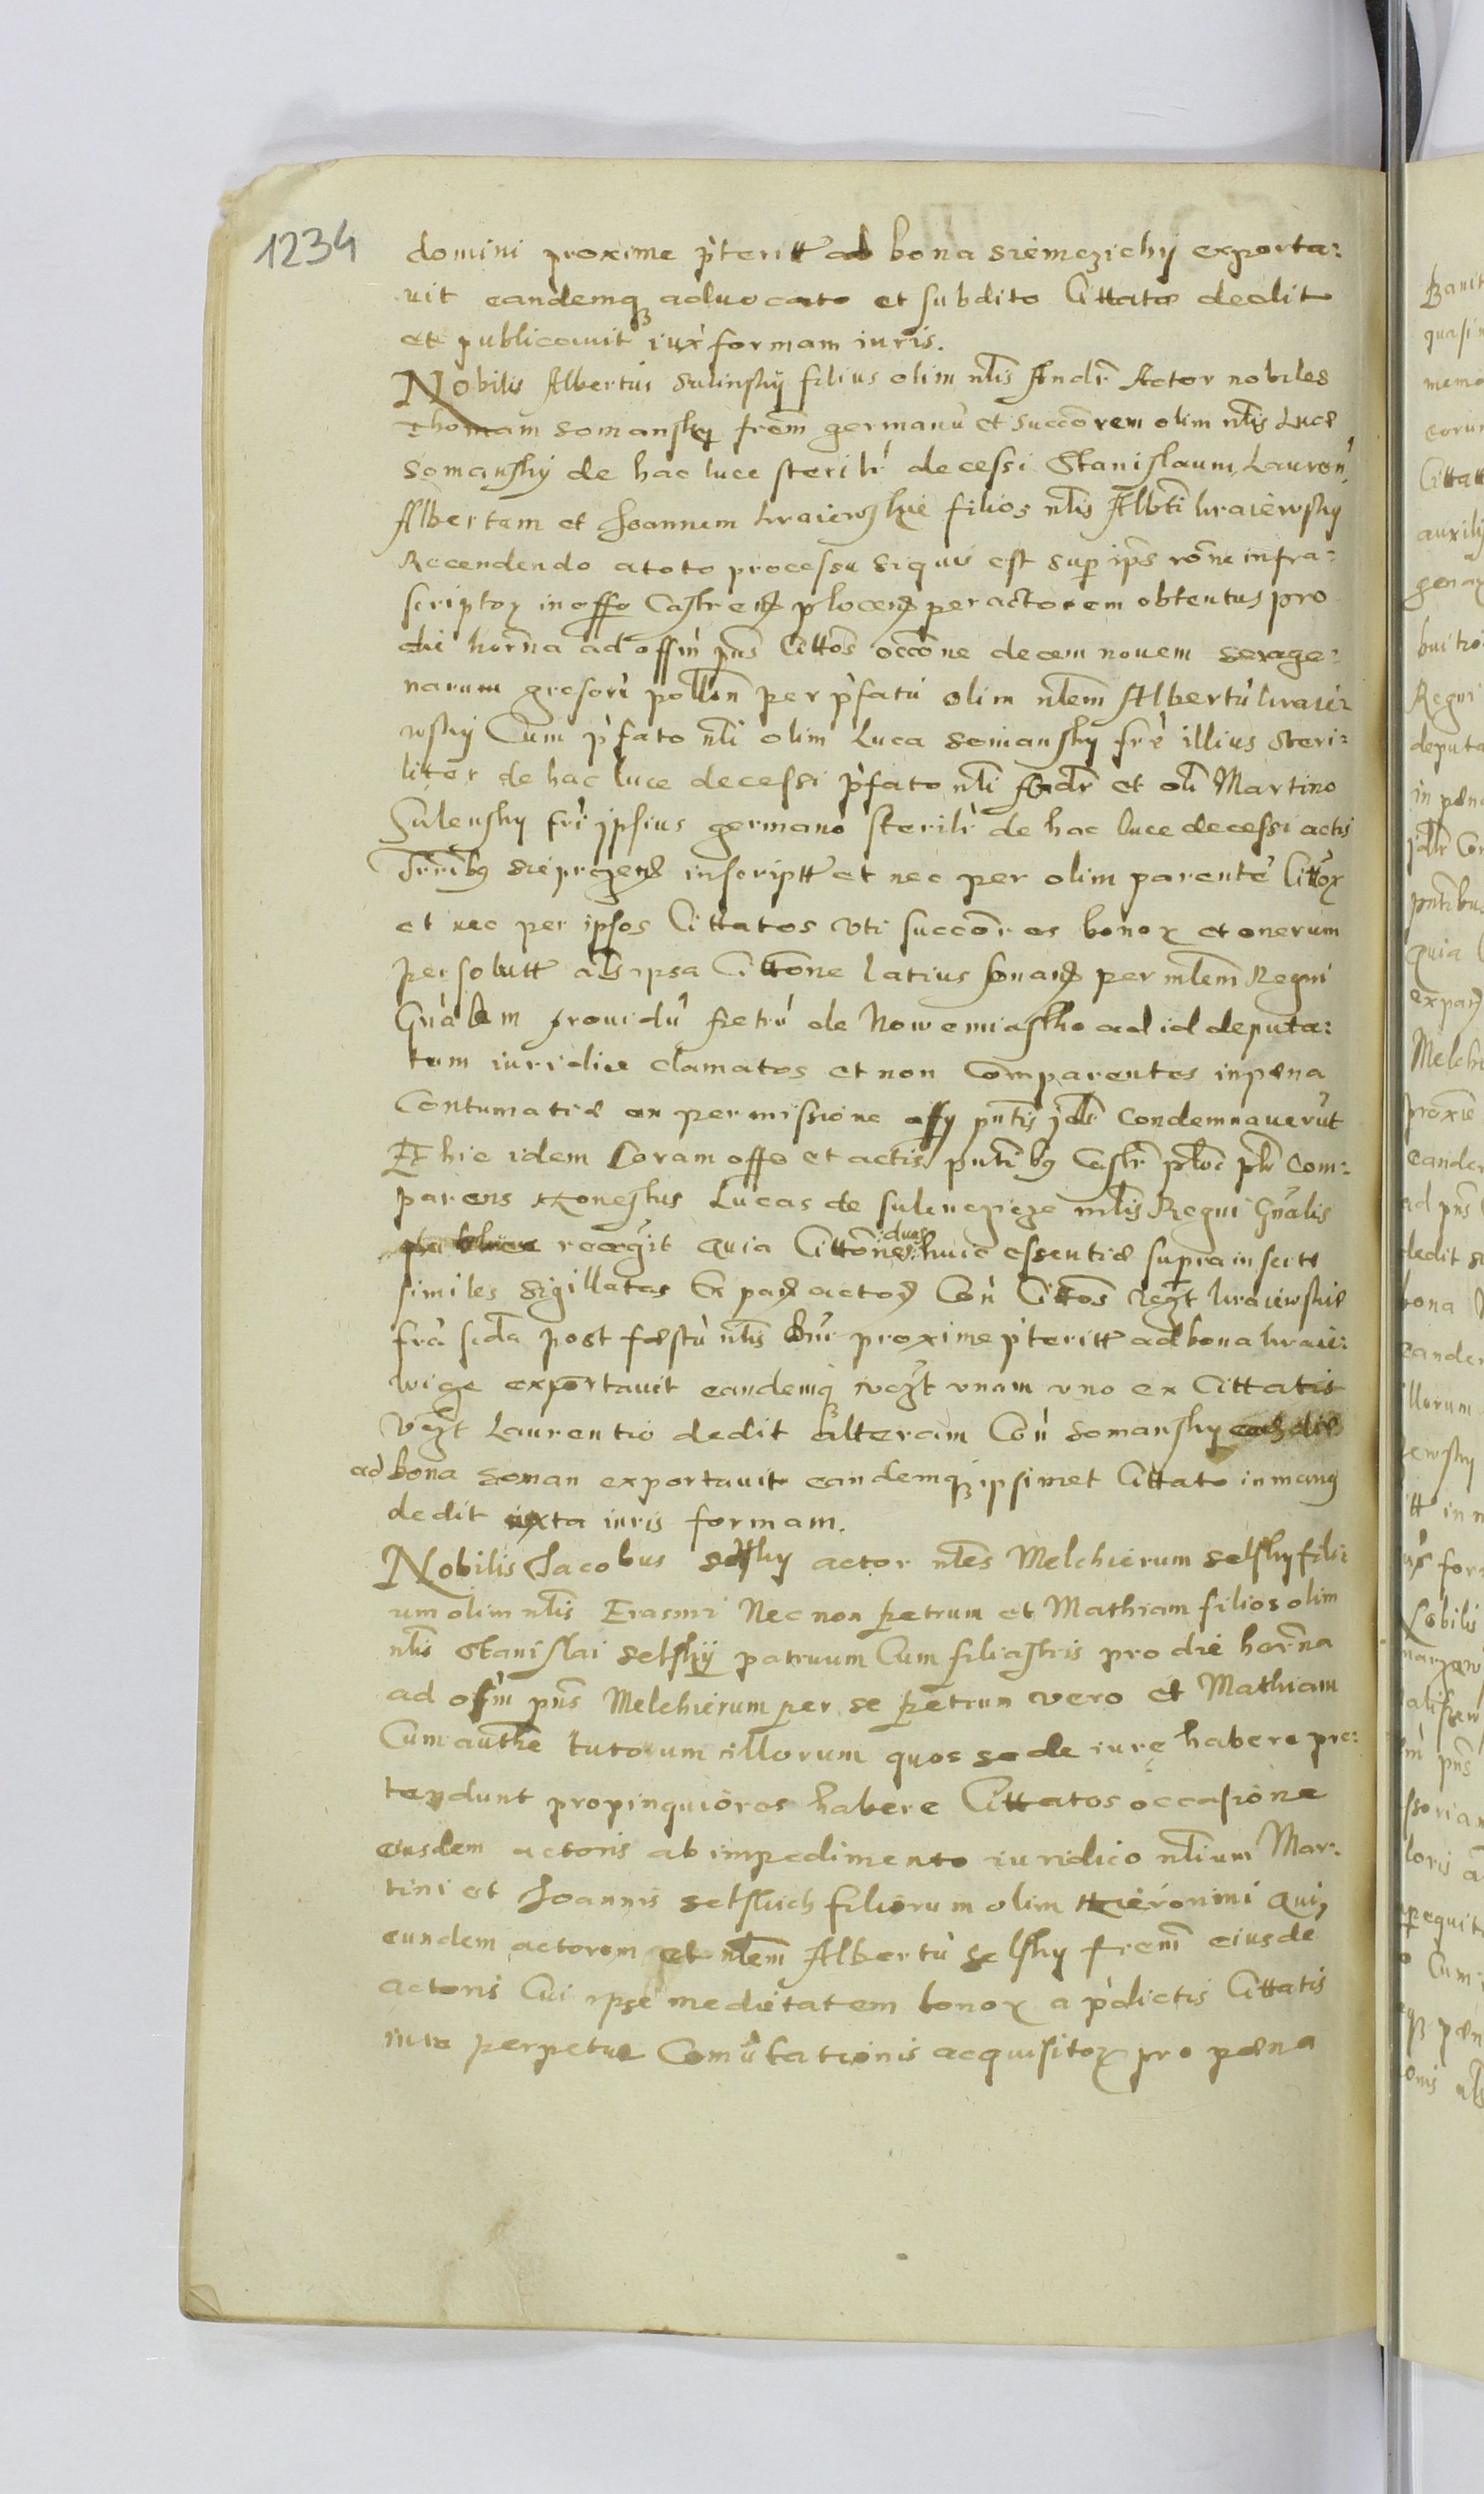 1234
domini proxime p'teritt ad bona siemczichÿ exporta:
uit eandemq3 aduocato et subdito Cittatæ dedit
et publicauit iux' formam iuris.
Nobilis Albertus Sulinskÿ filius olim nlis Andr Actor nobiles
Thomam somansky frem germanu et succorem olim nlis Lucæ
Somanskÿ de hac luce sterilr decessi Stanislaum, Lauren,
Albertum et Joannem kraiewskie filios nlis Albti kraiewskÿ
Recendendo a toto processu siquis est sup ips rone infra:
scriptoꝝ in offo Castren plocen per actorem obtentus pro
die horna ad offm pns Cittos occone decem nouem sexage:
narum gresoru pollon per p'fatu olim nlem Albertu kraie:
wskÿ Cum p'fato nli olim Luca somansky fre illius steri:
liter de hac luce decessi p'fato nli Andr et oli Martino
Sulensky fri ipsius germano sterilr de hac luce decessi actis
Trribq sieprczen inscriptt et nec per olim parente Cittoꝝ
et nec per ipsos Cittatos vti succores bonoꝝ et onerum
persolutt als ipsa Cittone latius sonan per mlem Regni
Gnalem prouidu Petru de Nowemiastko ad id deputa:
tum iuridice clamatos et non Comparentes in pæna
Contumatiæ ex permissione offÿ pntis jdlr Condemnauerut
Et hic idem Coram offo et actis pntibq Castr ploc plr Com:
parens Honestus Lucas de sulenczicze mlis Regni Gnalis
recogit quia Cittones duas huic essentiæ supra inserte
similes sigillatas Ex par actor Con Cittos regt kraiewskie
fra scda post festu nlis Dni proxime p'teritt ad bona kraie:
wicze exportauit eandemq vegt vnam vno ex Cittatis
vegt Laurentio dedit alteram Con somansky eads die
ad bona soman exportauit eandemq3 ipsimet Cittato in manq
dedit iuxta iuris formam.
Nobilis Jacobus selsky actor nles Melchierum selskÿ fili:
um olim nlis Erasmi Nec non Petrum et Mathiam filios olim
nlis Stanislai selskÿ patruum Cum filiastris pro die horna
ad ofm pns Melchierum per se Petrum vero et Mathiam
Cum authe tutorum illorum quos se de iure habere pre:
tendunt propinquiores habere Cittatos occasione
eiusdem actoris ab impedimento iuridico nlium Mar:
tini et Joannis selskich filiorum olim Hieronimi qui,
eundem actorem et nlem Albertu selsky frem eiusde
actoris Cui ipse medietatem bonoꝝ a p'dictis Cittatis
iure perpetuæ Comutationis acquisitoꝝ pro pæna